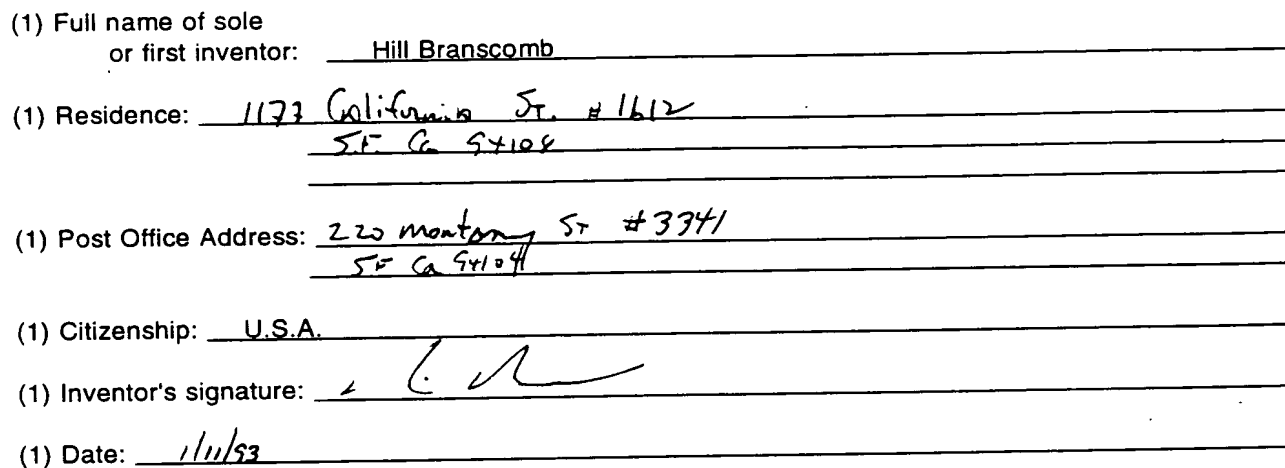 (1) Full name of sole
or first inventor: Hill Branscomb
(1) Residence: 1177 California St. #1612
S.F. Ca 94108
(1) Post Office Address: 220 St #3341
SF Ca 94104
(1) Citizenship: U.S.A.
(1) Inventor's signature:
(1) Date: 1/11/93